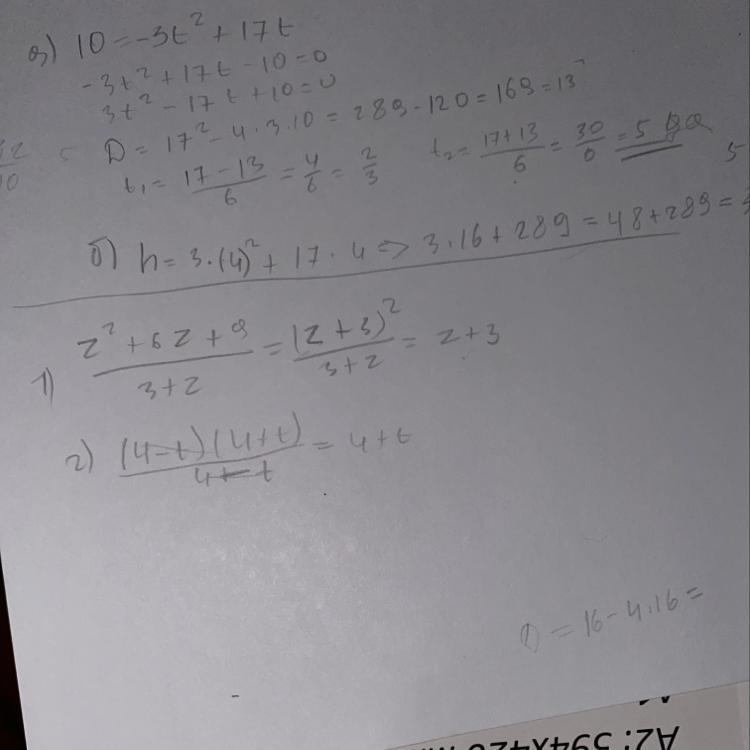 а) 10 = -3t² + 17t
-3t² + 17t - 10 = 0
3t² - 17t + 10 = 0
D = 17² - 4·3·10 = 289 - 120 = 169 = 13²
t₁ = (17 - 13)/6 = 4/6 = 2/3 t₂ = (17 + 13)/6 = 30/6 = 5
б) h = 3·(4)² + 17·4 => 3·16 + 289 = 48 + 289 =
1) (z² + 6z + 9)/(3 + z) = (z + 3)²/(3 + z) = z + 3
2) (4 - t)(4 + t)/(4 - t) = 4 + t
D = 16 - 4·16 =
A2: 594x420